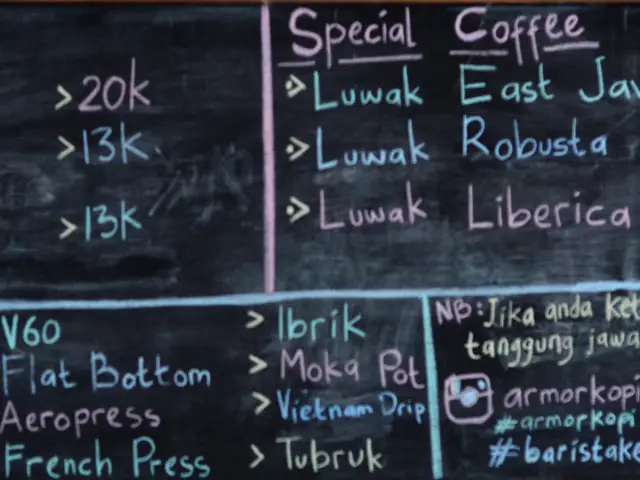 > 20k
> 13k
> 13k
Special Coffee
> Luwak East Jav
> Luwak Robusta
> Luwak Liberica
V60
Flat Bottom
Aeropress
French Press
> Ibrik
> Moka Pot
> Vietnam Drip
> Tubruk
NB: Jika anda ket
tanggung jawa
armorkopi
#armorkopi
#baristake